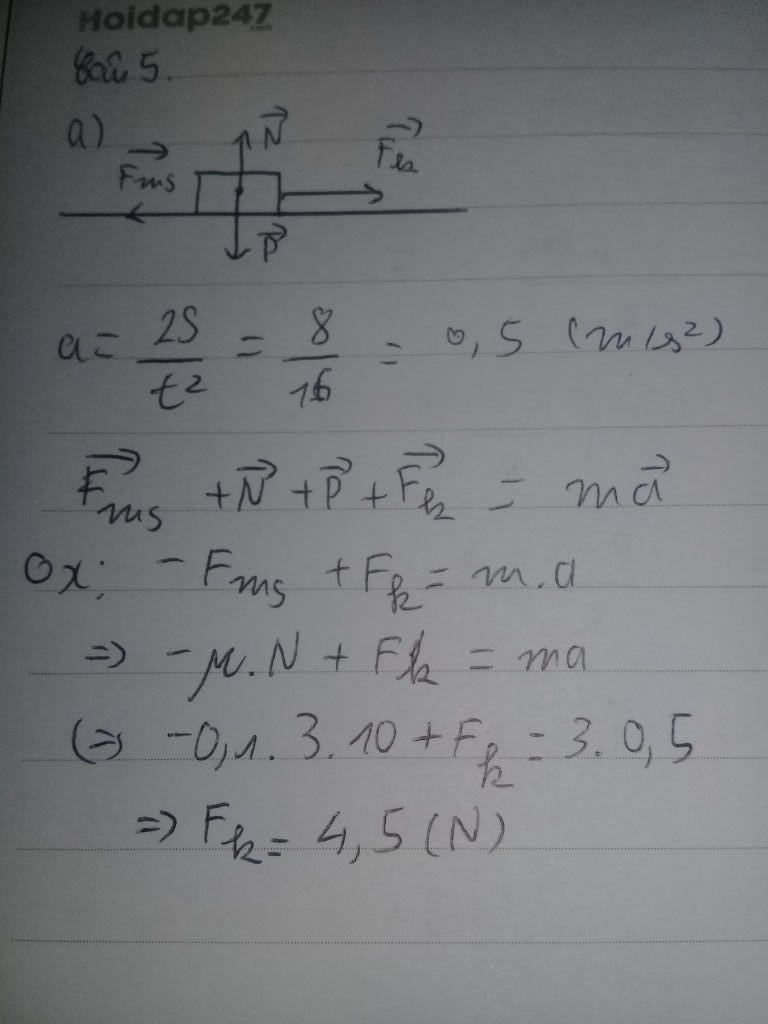 Hoidap247
.com
Bài 5.
a)
N⃗
F⃗ms
F⃗k
P⃗
a = 2S/t² = 8/16 = 0,5 (m/s²)
F⃗ms + N⃗ + P⃗ + F⃗k = ma⃗
Ox: -Fms + Fk = m.a
=> -μ.N + Fk = ma
(=> -0,1.3.10 + Fk = 3.0,5
=> Fk = 4,5 (N)